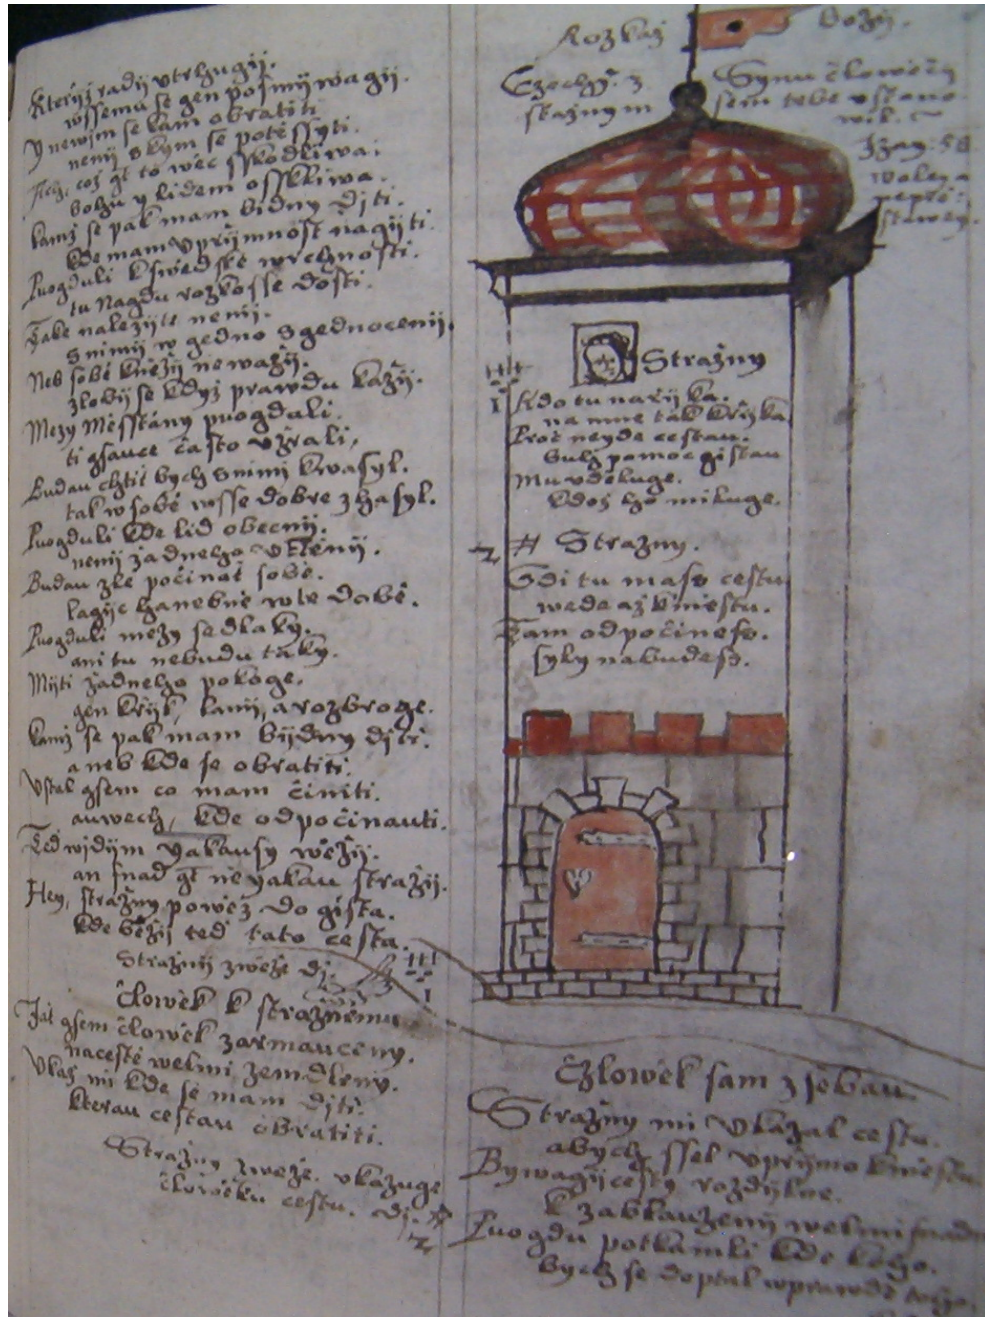 Kterijž radij vtrhugij.
wssema se gen posmijwagij.
Y newjm se kam obratiti
nenij s kym se potessyti.
Ach, což gt to wěc sskodliwa.
bohu y lidem osskliwa.
kamž se pak mam bidny djti.
kde mam vprijmnost nagijti.
Puogduli k swědské wrchnosti.
tu nagdu rozkosse dosti.
Take náležijte nenij.
s nimij w gedno sgednocenij.
Neb sobě kněžij neważij.
zlobij se kdyż prawdu kažij.
Mezy Městtány puogduli.
ti gsauce často ožrali,
Budau chtit bych s nimi kwasyl.
tak w sobě wsse dobre zhasyl.
Puogduli kde lid obecnij.
nenij žadneho vctěnij.
Budau zle počinat sobě.
lagijc hanebně w te době.
Puogduli mezy sedlaky.
ani tu nebudu taky.
Mijti žadneho pokoge.
gen křyk, lamij, a rozbroge.
kamž se pak mam bijdny djti.
aneb kde se obratiti.
Vstal gsem co mam činiti.
auwech, kde odpočinauti.
Ted widijm yakausy wěžij.
an snad gt ne yakau stražij.
Hey, stražny powěz do gista.
kde běžij ted tato cesta.
Stražnij zwěže dj.
1
Člowěk k stražnému
Jat gsem člowěk zarmauceny.
na cestě welmi zemdleny.
Vkaž mi kde se mam djti.
kterau cestau obratiti.
Stražny zwěže vkazuge
člowěku cestu. dj. #
2
Rozkaz Božij.
Ezechy. 3
stražnym
Synu člowěčy
sem tebe vstano-
wil.
Izay: 58
woley a
nepře:
stawey.
O Stražny
1
Kdo tu nařijka.
na mne tak křyka
Proč neyde cestau.
Suth pomoc gistau
Mu vděluge.
kdož ho miluge.
2 # Stražny.
Gdi tu mass cestu
wede až k městu.
Tam odpočiness.
syly nabudess.
Člowěk sam z sebau
Stražny mi vkázal cestu.
abych ssel vpřijmo k městu
Bywagij cesty rozdijlne.
k zablauzenij welmi snadne
Puogdu potkamli kde koho.
bych se doptal wprawdě toho.